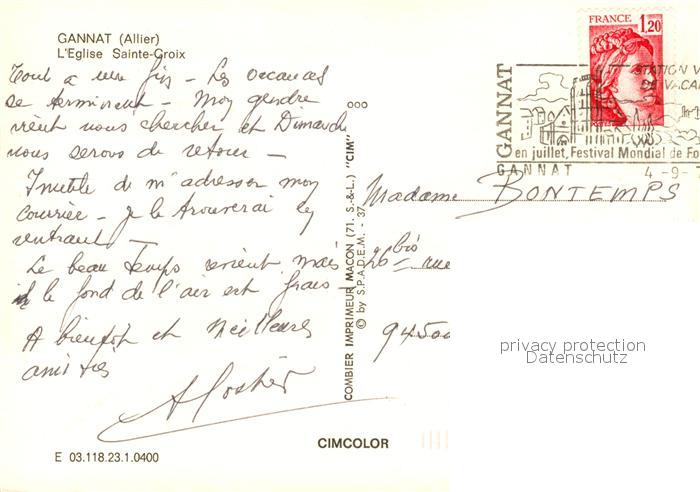 GANNAT (Allier)
L'Eglise Sainte-Croix
Tout a une fin - Les vacances
se terminent - Mon gendre
vient nous chercher et Dimanche
nous serons de retour -
Inutile de m'adresser mon
courrier - je le trouverai en
rentrant -
Le beau temps revient mais
le fond de l'air est frais -
A bientôt et Meilleures
amitiés
E 03.118.23.1.0400
CIMCOLOR
COMBIER IMPRIMEUR MACON (71. S.-&-L.) "CIM"
© by S.P.A.D.E.M. - 37
FRANCE 1,20
GANNAT
STATION V
VACA
en juillet, Festival Mondial de Fo
GANNAT 4 -9-
Madame BONTEMPS
26 bis rue
94500
privacy protection
Datenschutz